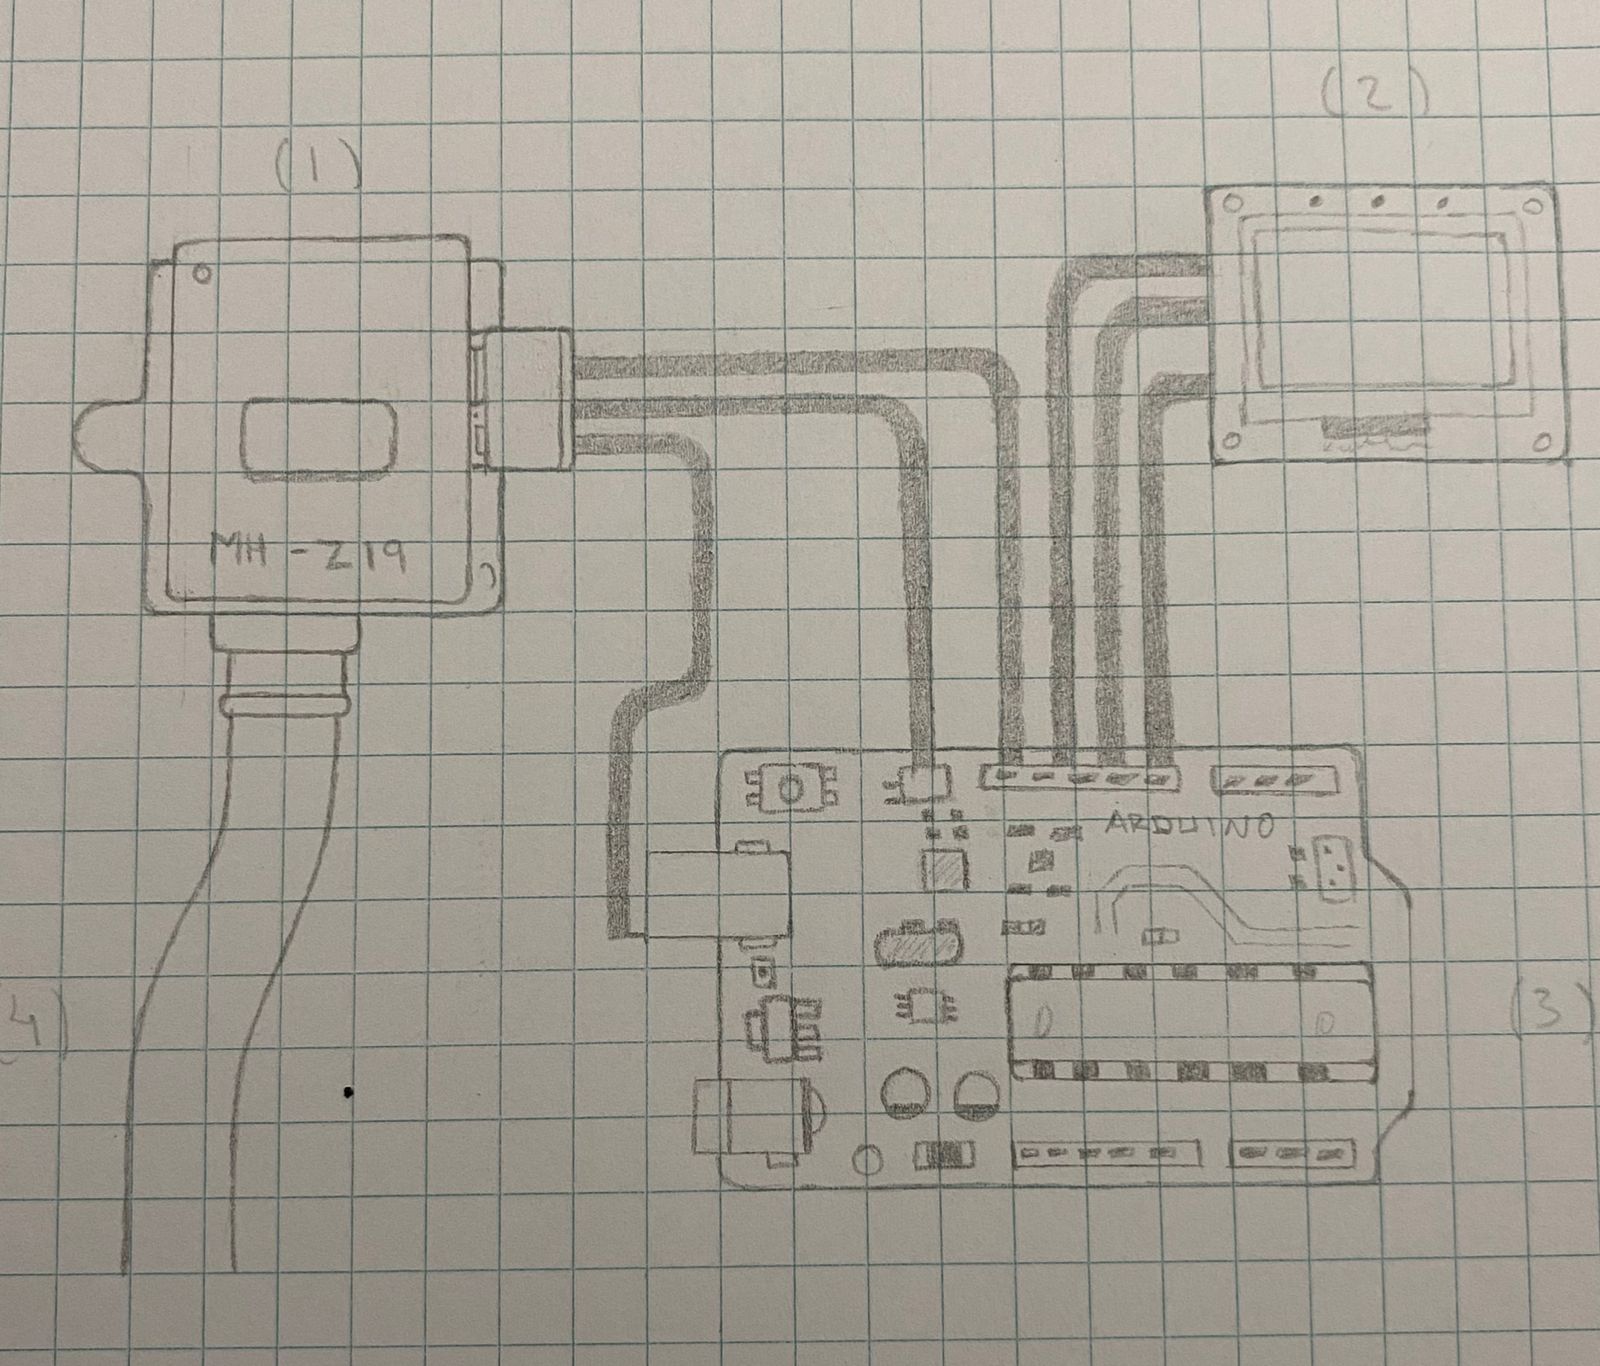 (1)
(2)
MH-Z19
ARDUINO
(3)
(4)